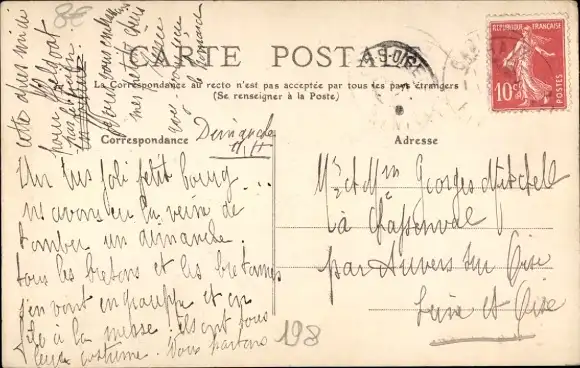 8€
CARTE POSTALE
La Correspondance au recto n'est pas acceptée par tous les pays étrangers
(Se renseigner à la Poste)
Correspondance
Adresse
RÉPUBLIQUE FRANÇAISE
10c
POSTES
Dimanche
Un très joli petit bourg...
ns avons eu la veine de
tomber un dimanche,
tous les bretons et les bretonnes
s'en vont en groupe et en
file à la messe. ils ont tous
leur costume. Nous partons
cette après midi
pour
je vous embrasse
mes petits chéris
Mr et Mme Georges Mitchell
à Chaponval
par Auvers sur Oise
Seine et Oise
198